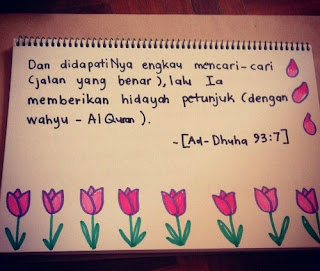 Dan didapatiNya engkau mencari-cari
(jalan yang benar), lalu Ia
memberikan hidayah petunjuk (dengan
wahyu - Al Quran).
~[Ad-Dhuha 93:7]